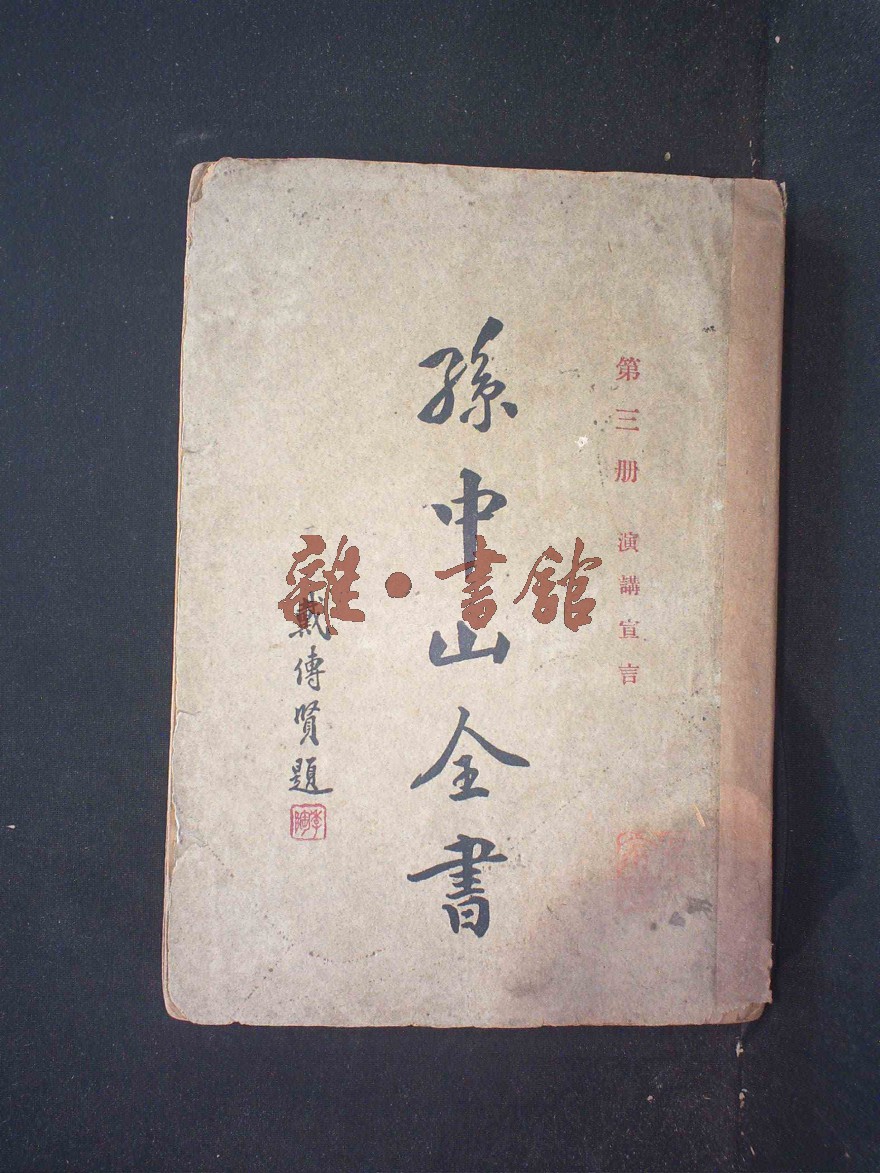 第三册 演講宣言
孫中山全書
戴傳賢題
季陶
雜·書館